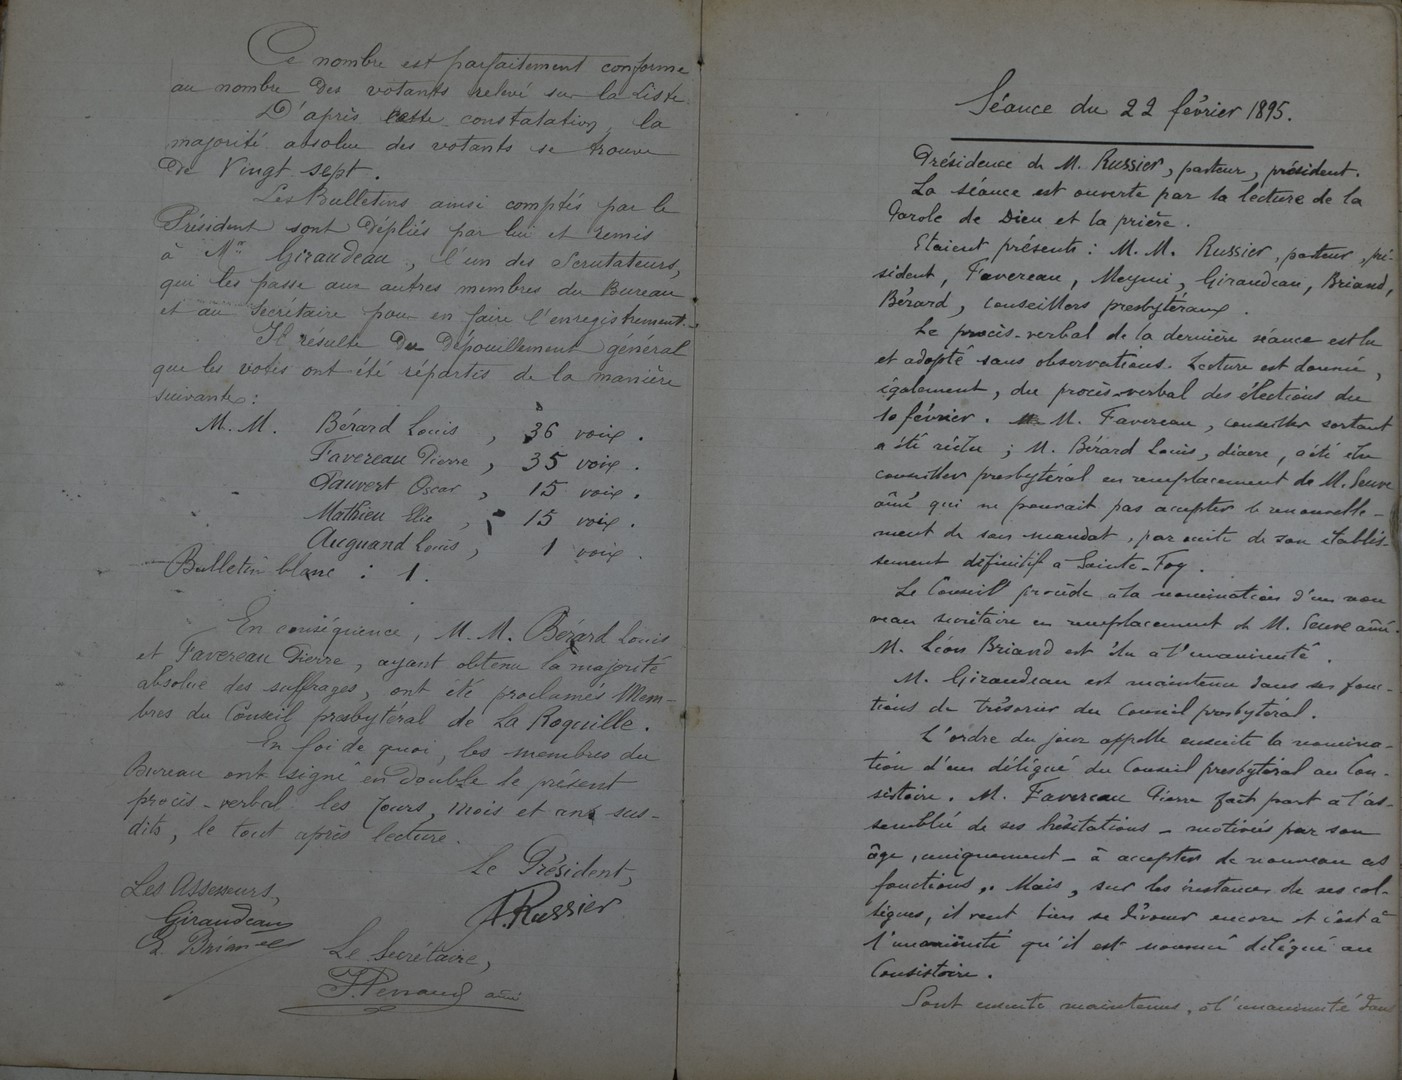 Ce nombre est parfaitement conforme
au nombre des votants relevé sur la liste.
D'après cette constatation, la
majorité absolue des votants se trouve
de Vingt sept.
Les Bulletins ainsi comptés par le
Président sont dépliés par lui et remis
à Mr Giraudeau, l'un des Scrutateurs,
qui les passe aux autres membres du Bureau
et au Secrétaire pour en faire l'enregistrement.
Il résulte du dépouillement général
que les votes ont été répartis de la manière
suivante :
M. M. Bérard Louis, 36 voix.
Favereau Pierre, 35 voix.
Pauvert Oscar, 15 voix.
Mathieu Elie, 15 voix.
Auguand Louis, 1 voix.
Bulletin blanc : 1.
En conséquence, M. M. Bérard Louis
et Favereau Pierre, ayant obtenu la majorité
absolue des suffrages, ont été proclamés Mem-
bres du Conseil presbytéral de La Roquille.
En foi de quoi, les membres du
Bureau ont signé en double le présent
procès-verbal les jours, mois et an sus-
dits, le tout après lecture.
Le Président,
Les Assesseurs,
Russier
Giraudeau
L. Briand
Le Secrétaire,
aîné
Séance du 22 février 1895.
Présidence de M. Russier, pasteur, président.
La séance est ouverte par la lecture de la
Parole de Dieu et la prière.
Etaient présents : M. M. Russier, pasteur, pré-
sident, Favereau, Meynie, Giraudeau, Briand,
Bérard, conseillers presbytéraux.
Le procès-verbal de la dernière séance est lu
et adopté sans observations. Lecture est donnée,
également, du procès-verbal des élections du
10 février. M. Favereau, conseiller sortant
a été réélu ; M. Bérard Louis, diacre, a été élu
conseiller presbytéral en remplacement de M. Seuve
aîné qui ne pouvait pas accepter le renouvelle-
ment de son mandat, par suite de son établis-
sement définitif à Sainte-Foy.
Le Conseil procède à la nomination d'un nou
veau secrétaire en remplacement de M. Seuve aîné.
M. Léon Briand est élu à l'unanimité.
M. Giraudeau est maintenu dans ses fonc-
tions de trésorier du Conseil presbytéral.
L'ordre du jour appelle ensuite la nomina-
tion d'un délégué du Conseil presbytéral au Con-
sistoire. M. Favereau Pierre fait part à l'as-
semblée de ses hésitations - motivées par son
âge, uniquement - à accepter de nouveau ces
fonctions. Mais, sur les instances de ses col-
lègues, il veut bien se dévouer encore et c'est à
l'unanimité qu'il est nommé délégué au
Consistoire.
Sont ensuite maintenus, à l'unanimité dans